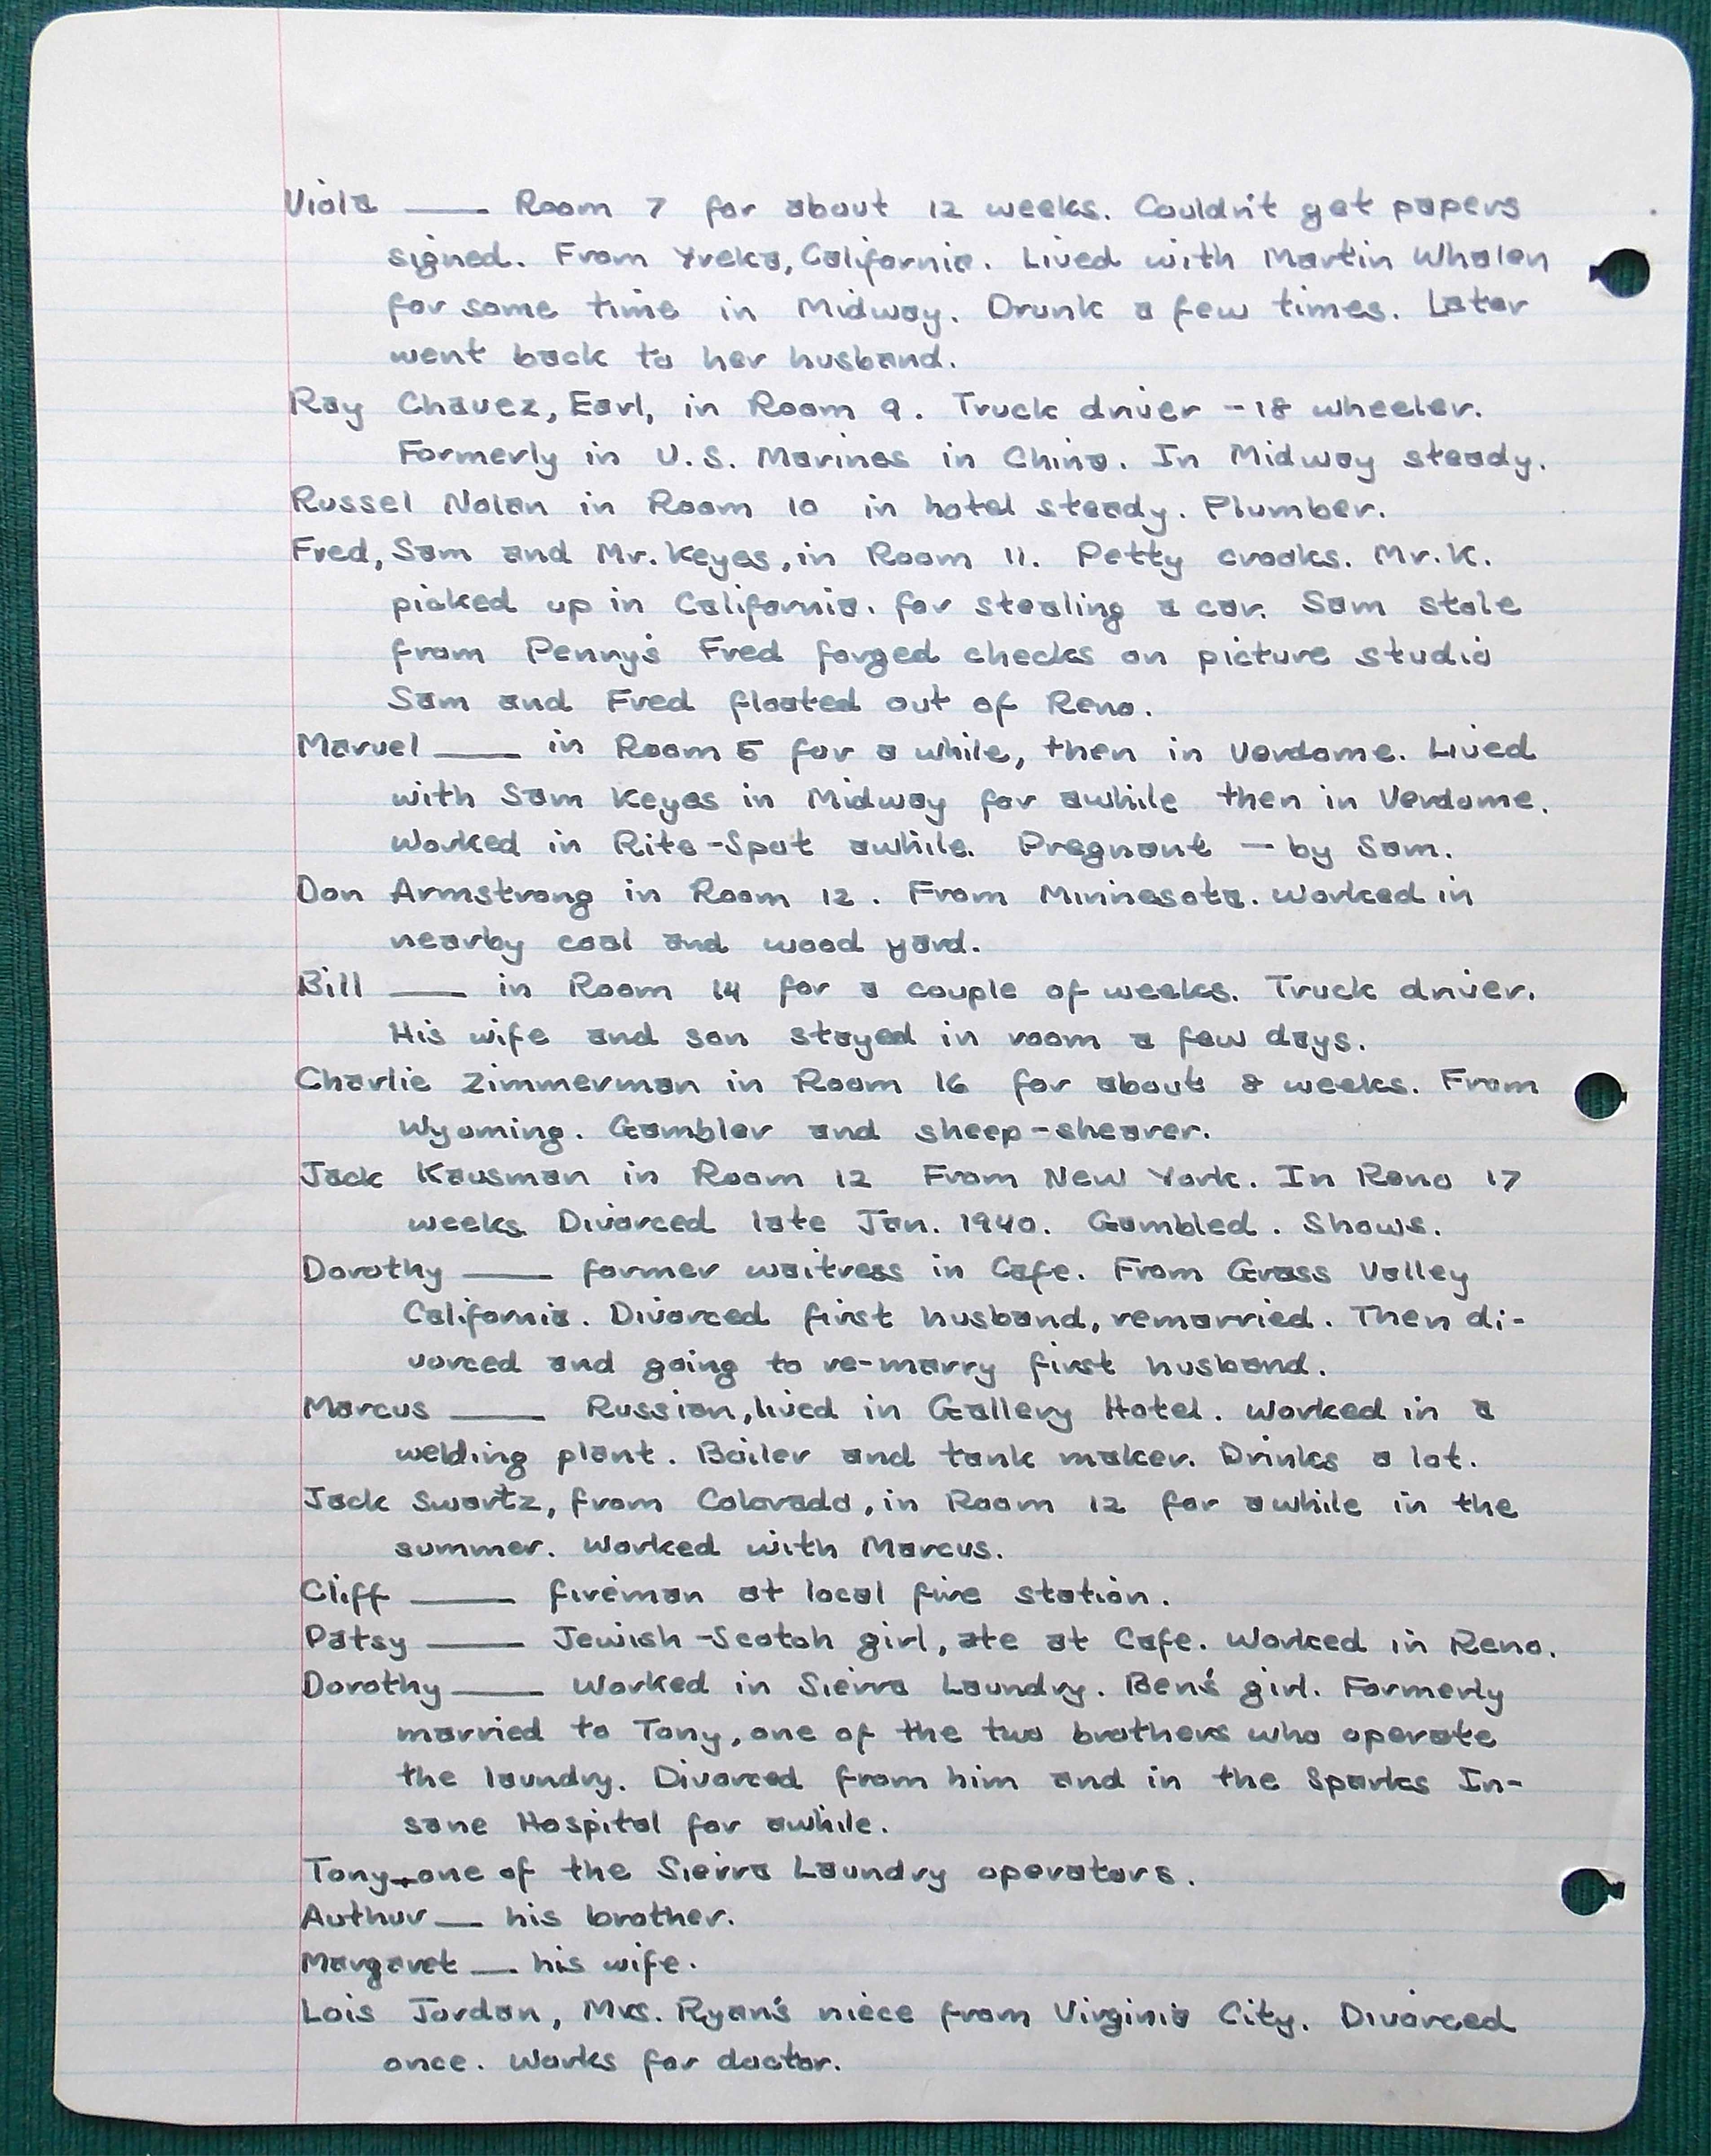 Viola ___ Room 7 for about 12 weeks. Couldn't get papers
signed. From Yreka, California. Lived with Martin Whalen
for some time in Midway. Drunk a few times. Later
went back to her husband.
Ray Chavez, Earl, in Room 9. Truck driver - 18 wheeler.
Formerly in U.S. Marines in China. In Midway steady.
Russel Nolan in Room 10 in hotel steady. Plumber.
Fred, Sam and Mr. Keyes, in Room 11. Petty crooks. Mr. K.
picked up in California. for stealing a car. Sam stole
from Penny's Fred forged checks on picture studio
Sam and Fred floated out of Reno.
Marvel ___ in Room 5 for a while, then in Verdome. Lived
with Sam Keyes in Midway for awhile then in Verdome.
Worked in Rite-Spot awhile. Pregnant — by Sam.
Don Armstrong in Room 12. From Minnesota. Worked in
nearby coal and wood yard.
Bill ___ in Room 14 for a couple of weeks. Truck driver.
His wife and son stayed in room a few days.
Charlie Zimmerman in Room 16 for about 8 weeks. From
Wyoming. Gambler and sheep-shearer.
Jack Kausman in Room 12 From New York. In Reno 17
weeks. Divorced late Jan. 1940. Gambled. Shows.
Dorothy ___ former waitress in Cafe. From Grass Valley
California. Divorced first husband, remarried. Then di-
vorced and going to re-marry first husband.
Marcus ___ Russian, lived in Gallery Hotel. Worked in a
welding plant. Boiler and tank maker. Drinks a lot.
Jack Swartz, from Colorado, in Room 12 for awhile in the
summer. Worked with Marcus.
Cliff ___ fireman at local fire station.
Patsy ___ Jewish-Scotch girl, ate at Cafe. Worked in Reno.
Dorothy ___ Worked in Sierra Laundry. Ben's girl. Formerly
married to Tony, one of the two brothers who operate
the laundry. Divorced from him and in the Sparks In-
sane Hospital for awhile.
Tony — one of the Sierra Laundry operators.
Authur — his brother.
Margaret — his wife.
Lois Jordan, Mrs. Ryan's niece from Virginia City. Divorced
once. Works for doctor.